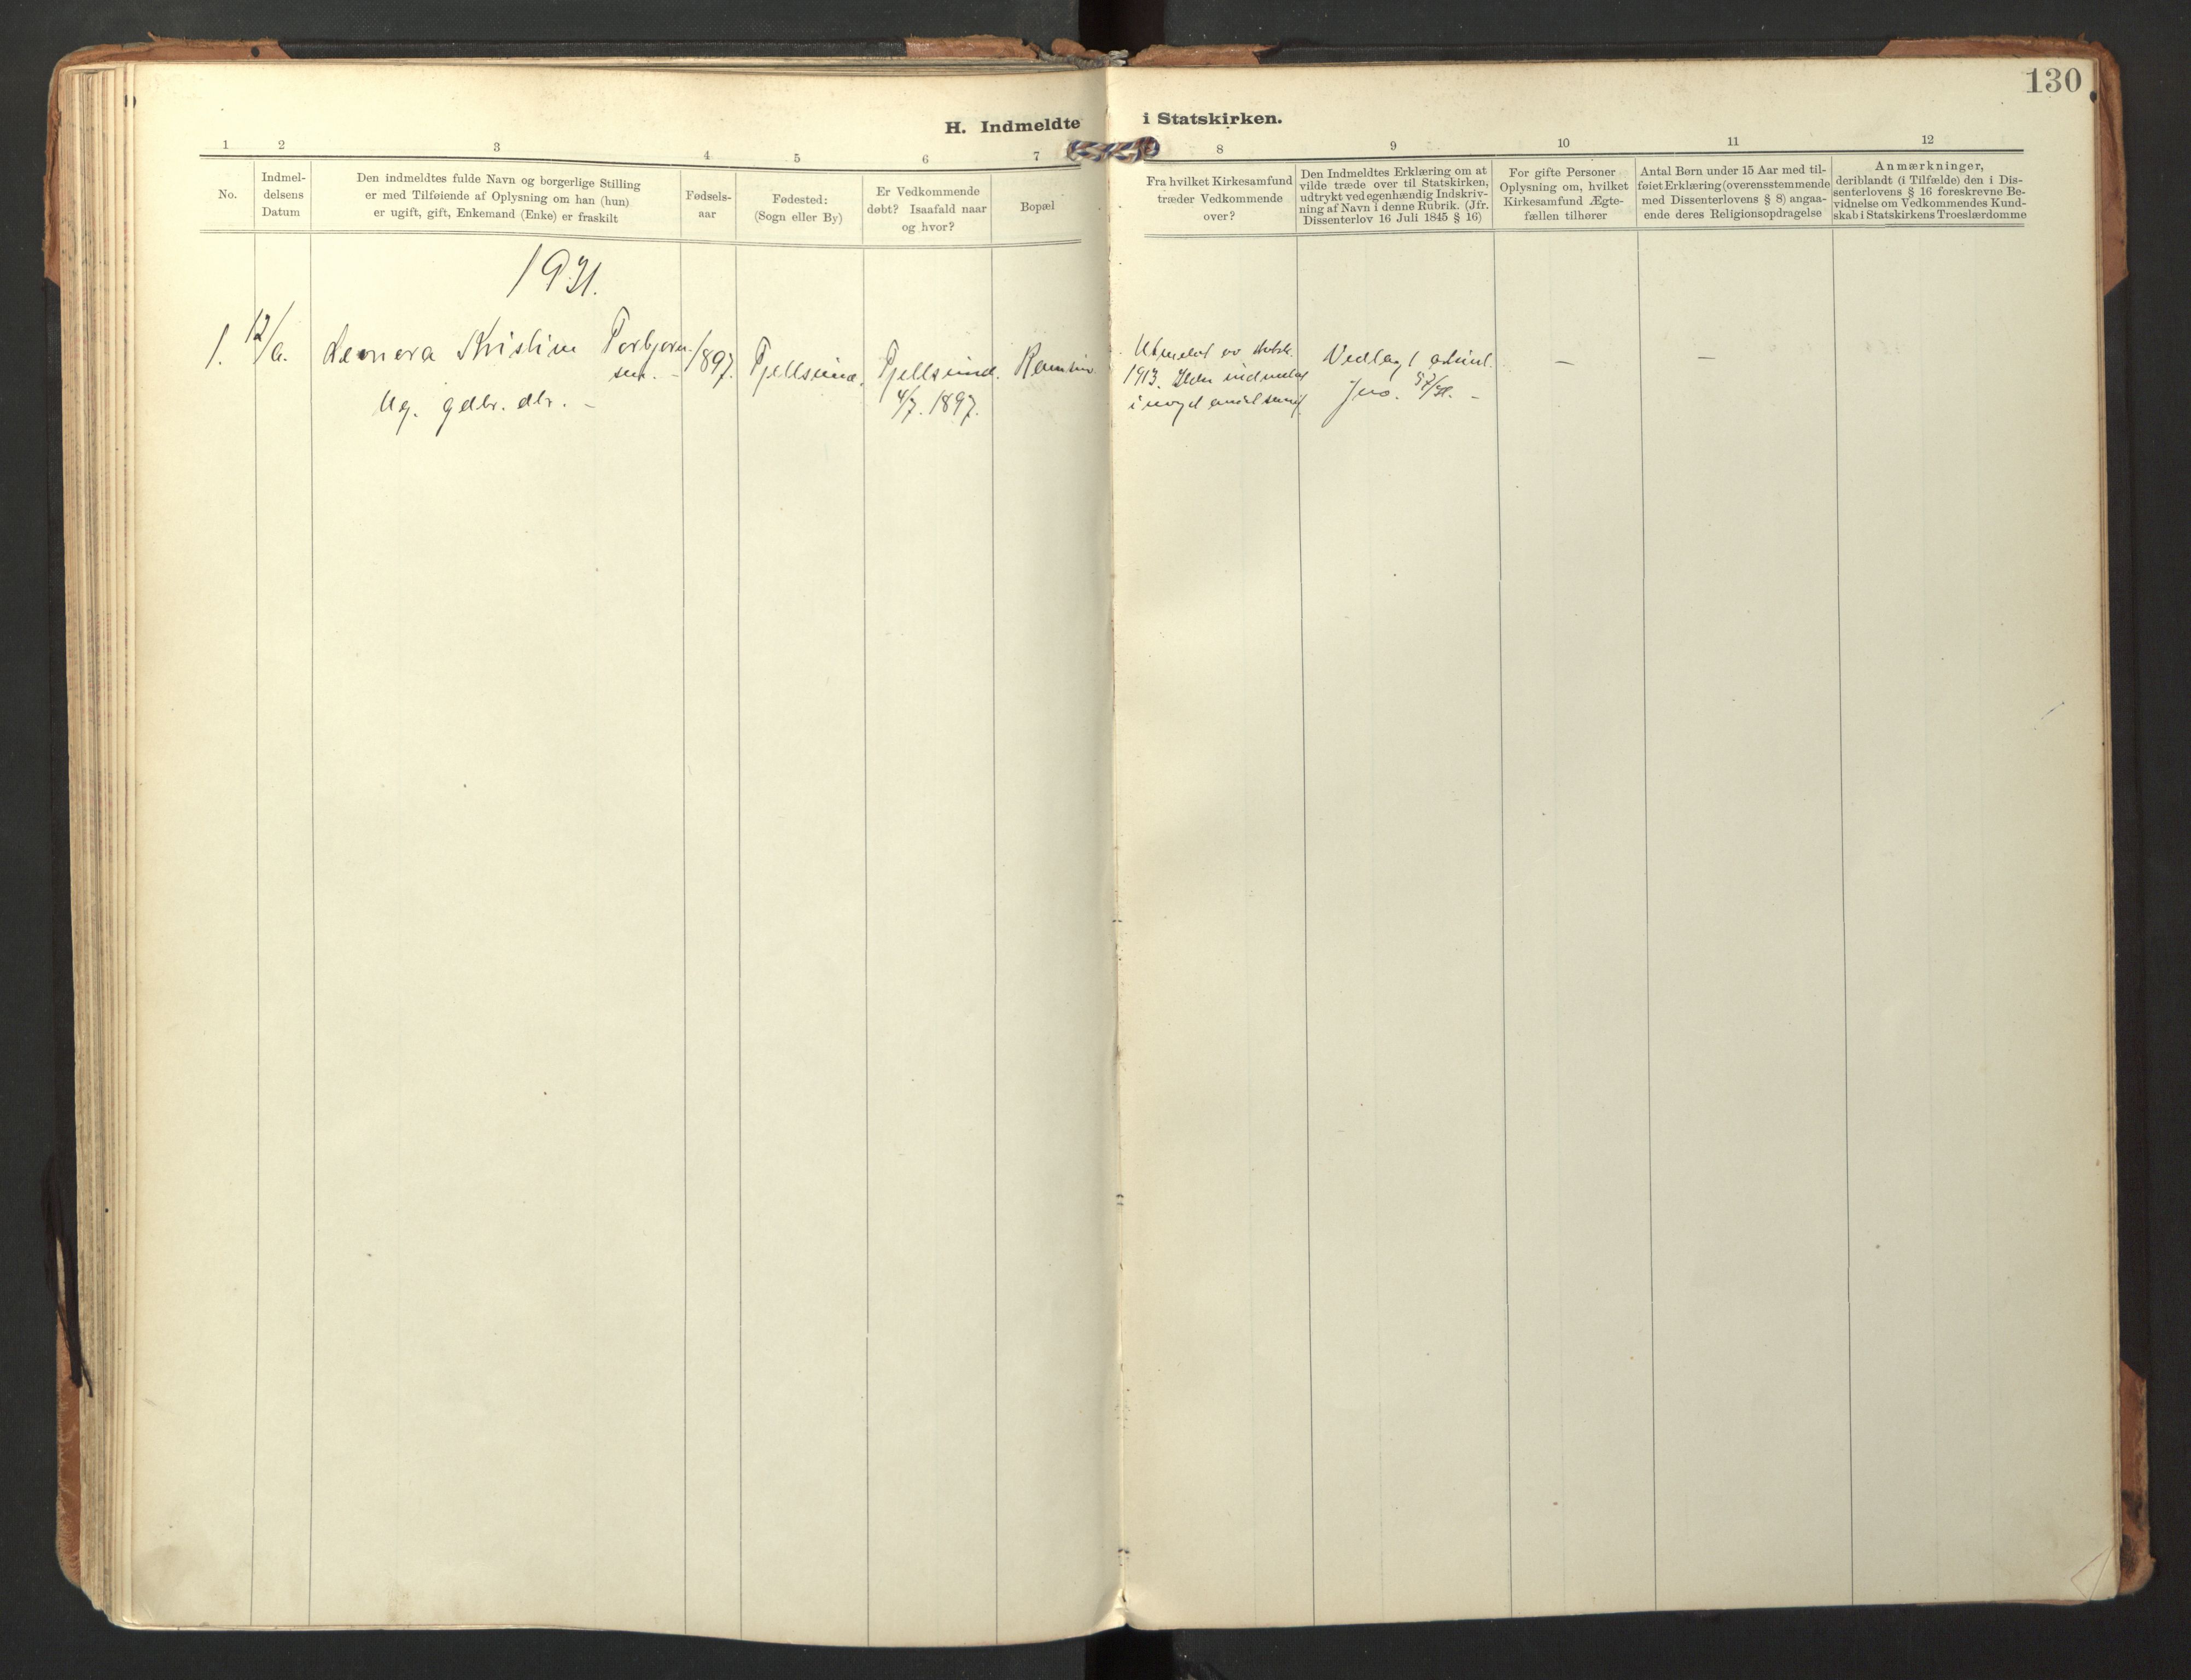 130
H. Indmeldte i Statskirken.
1 2 3 4 5 6 7 8 9 10 11 12
No.
Indmel-
delsens
Datum
Den indmeldtes fulde Navn og borgerlige Stilling
er med Tilføiende af Oplysning om han (hun)
er ugift, gift, Enkemand (Enke) er fraskilt
Fødsels-
aar
Fødested:
(Sogn eller By)
Er Vedkommende
døbt? Isaafald naar
og hvor?
Bopæl
Fra hvilket Kirkesamfund
træder Vedkommende
over?
Den Indmeldtes Erklæring om at
vilde træde over til Statskirken,
udtrykt ved egenhændig Indskriv-
ning af Navn i denne Rubrik. (Jfr.
Dissenterlov 16 Juli 1845 § 16)
For gifte Personer
Oplysning om, hvilket
Kirkesamfund Ægte-
fællen tilhører
Antal Børn under 15 Aar med til-
føiet Erklæring (overensstemmende
med Dissenterlovens § 8) angaa-
ende deres Religionsopdragelse
Anmærkninger,
deriblandt (i Tilfælde) den i Dis-
senterlovens § 16 foreskrevne Be-
vidnelse om Vedkommendes Kund-
skab i Statskirkens Troeslærdomme
1931.
1.
12/6.
Leonora Kristine Torbjørn-
sen. -
Ug. gdbr. dtr. -
1897.
Fjellsund.
Fjellsund.
4/7. 1897.
Utmeldt av statsk.
1913. Ikke indmeldt
i noget andet samf.
Vedlagt
Jno. -
-
-